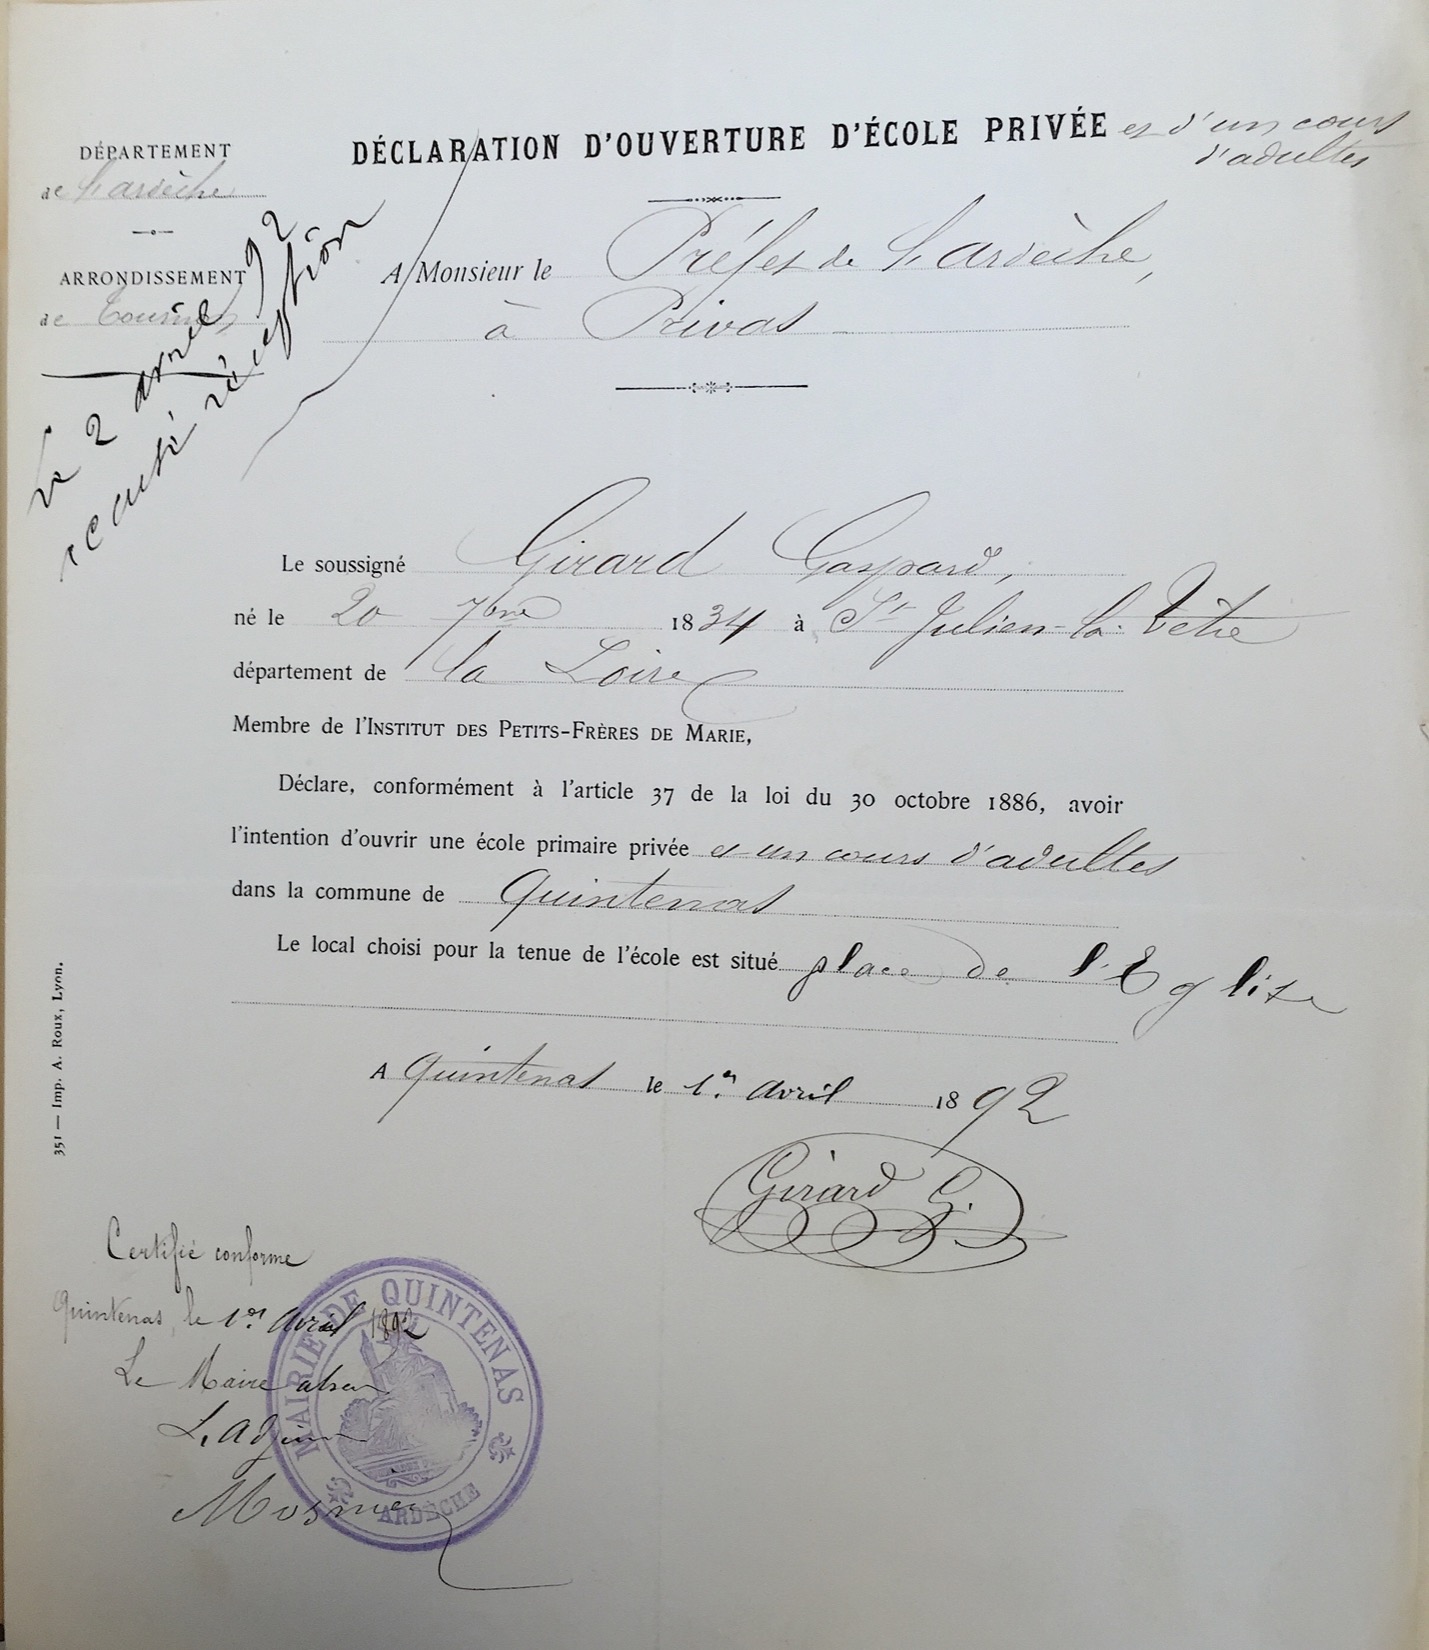 DÉPARTEMENT
de L'ardèche
ARRONDISSEMENT
de Tournon
DÉCLARATION D'OUVERTURE D'ÉCOLE PRIVÉE et d'un cours
d'adultes
A Monsieur le Préfet de L'ardèche,
à Privas
Le 2 avril 92
réception
Le soussigné Girard Gaspard,
né le 20 7bre 1834 à St Julien-la-Vêtre
département de la Loire
Membre de l'INSTITUT DES PETITS-FRÈRES DE MARIE,
Déclare, conformément à l'article 37 de la loi du 30 octobre 1886, avoir
l'intention d'ouvrir une école primaire privée et un cours d'adultes
dans la commune de Quintenas
Le local choisi pour la tenue de l'école est situé place de l'Eglise
A Quintenas le 1er avril 1892
Girard G.
351 — Imp. A. Roux, Lyon.
Certifié conforme
Quintenas, le 1er Avril 1892
Le Maire absent
L'adjoint
MAIRIE DE QUINTENAS
ARDÈCHE